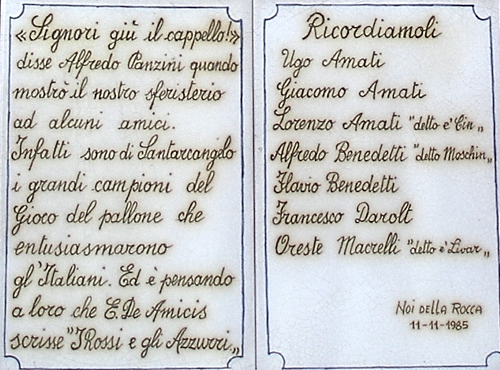 «Signori giù il cappello!»
disse Alfredo Panzini quando
mostrò il nostro sferisterio
ad alcuni amici.
Infatti sono di Santarcangelo
i grandi campioni del
Gioco del pallone che
entusiasmarono
gl'Italiani. Ed è pensando
a loro che E. De Amicis
scrisse "I Rossi e gli Azzurri„
Ricordiamoli
Ugo Amati
Giacomo Amati
Lorenzo Amati "detto e' Cin„
Alfredo Benedetti "detto Moschin„
Flavio Benedetti
Francesco Darolt
Oreste Macrelli "detto e' Livar„
Noi della Rocca
11-11-1985